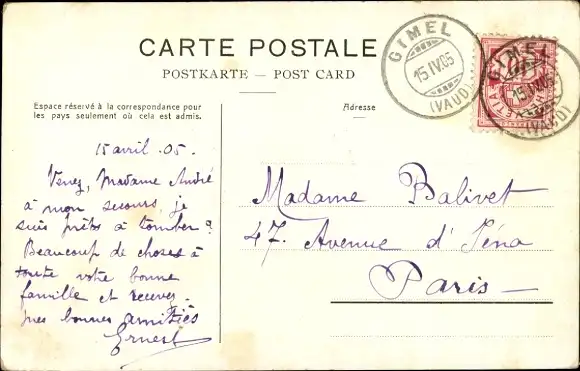 CARTE POSTALE
POSTKARTE — POST CARD
Espace réservé à la correspondance pour
les pays seulement où cela est admis.
Adresse
GIMEL
15 IV. 05
(VAUD)
GIMEL
15 IV. 05
(VAUD)
10
15 avril . 05.
Venez, Madame André
à mon secours, je
suis prêts à tomber ?
Beaucoup de choses à
toute votre bonne
famille et recevez
mes bonnes amitiés
Ernest
Madame Balivet
47. Avenue d'Iéna
Paris —